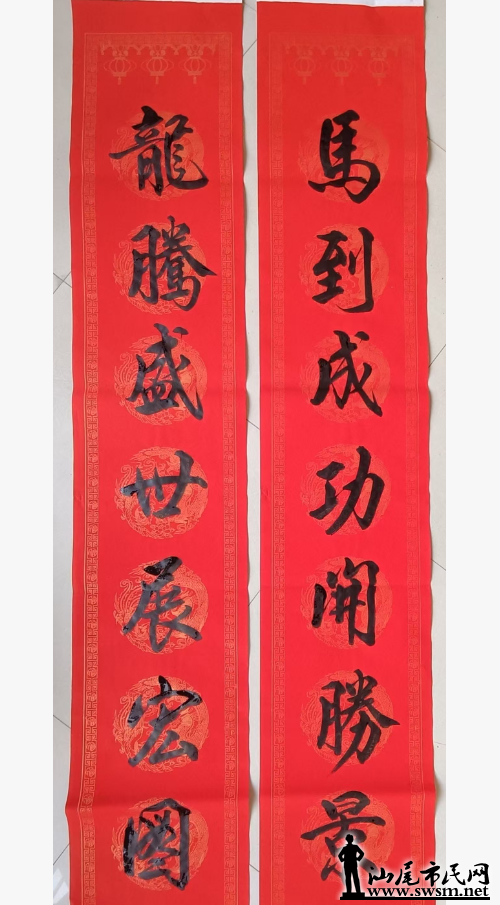 馬到成功開勝景
龍騰盛世展宏圖
汕尾市民网
www.swsm.net